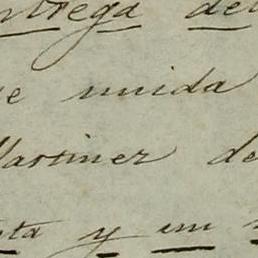 ntrega del
e unida
Martinez de
ta y un